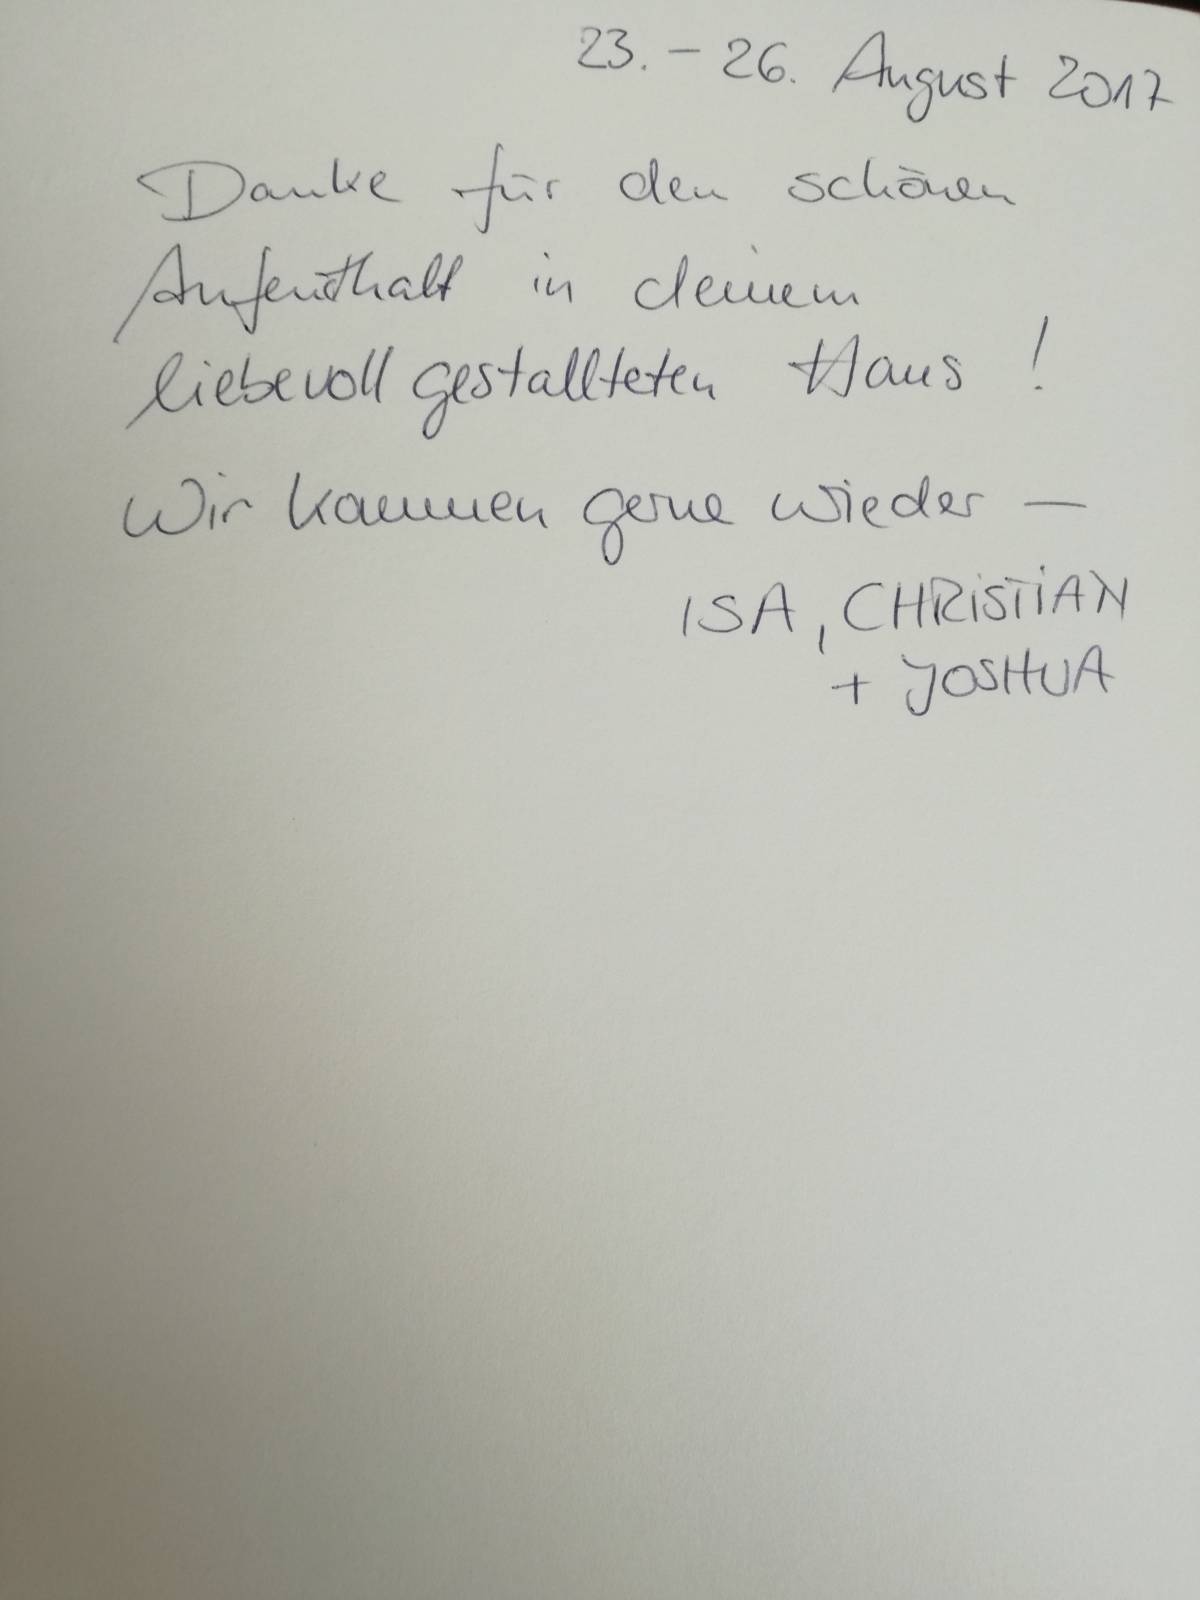 23. – 26. August 2017
Danke für den schönen
Aufenthalt in deinem
liebevoll gestallteten Haus !
Wir kommen gerne wieder —
ISA, CHRiSTiAN
+ JOSHUA